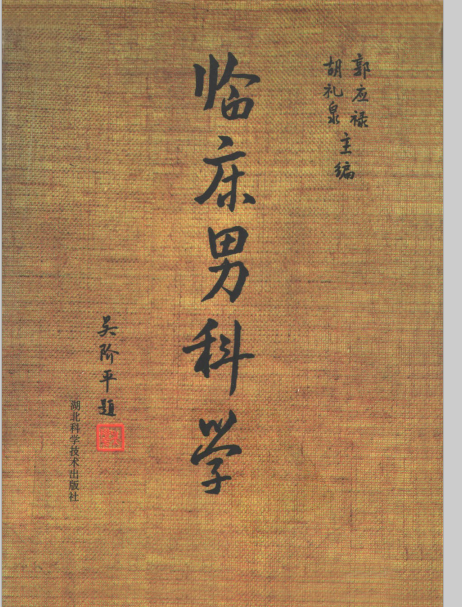 郭应禄
胡礼泉
主编
临床男科学
吴阶平题
湖北科学技术出版社